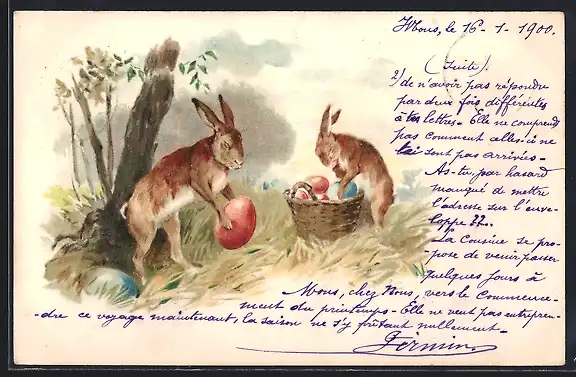 Mons, le 16-1-1900.
(Suite).
2) de n'avoir pas répondu
par deux fois différentes
à tes lettres - Elle ne comprend
pas comment celles-ci ne
lui sont pas arrivées -
As-tu, par hasard
manqué de mettre
l'adresse sur l'enve-
loppe ??..
La Cousine se pro-
pose de venir passer
quelques jours à
Mons, chez Nous, vers le Commence-
ment du printemps - Elle ne veut pas entrepren-
-dre ce voyage maintenant, la saison ne s'y prêtant nullement -
Firmin.